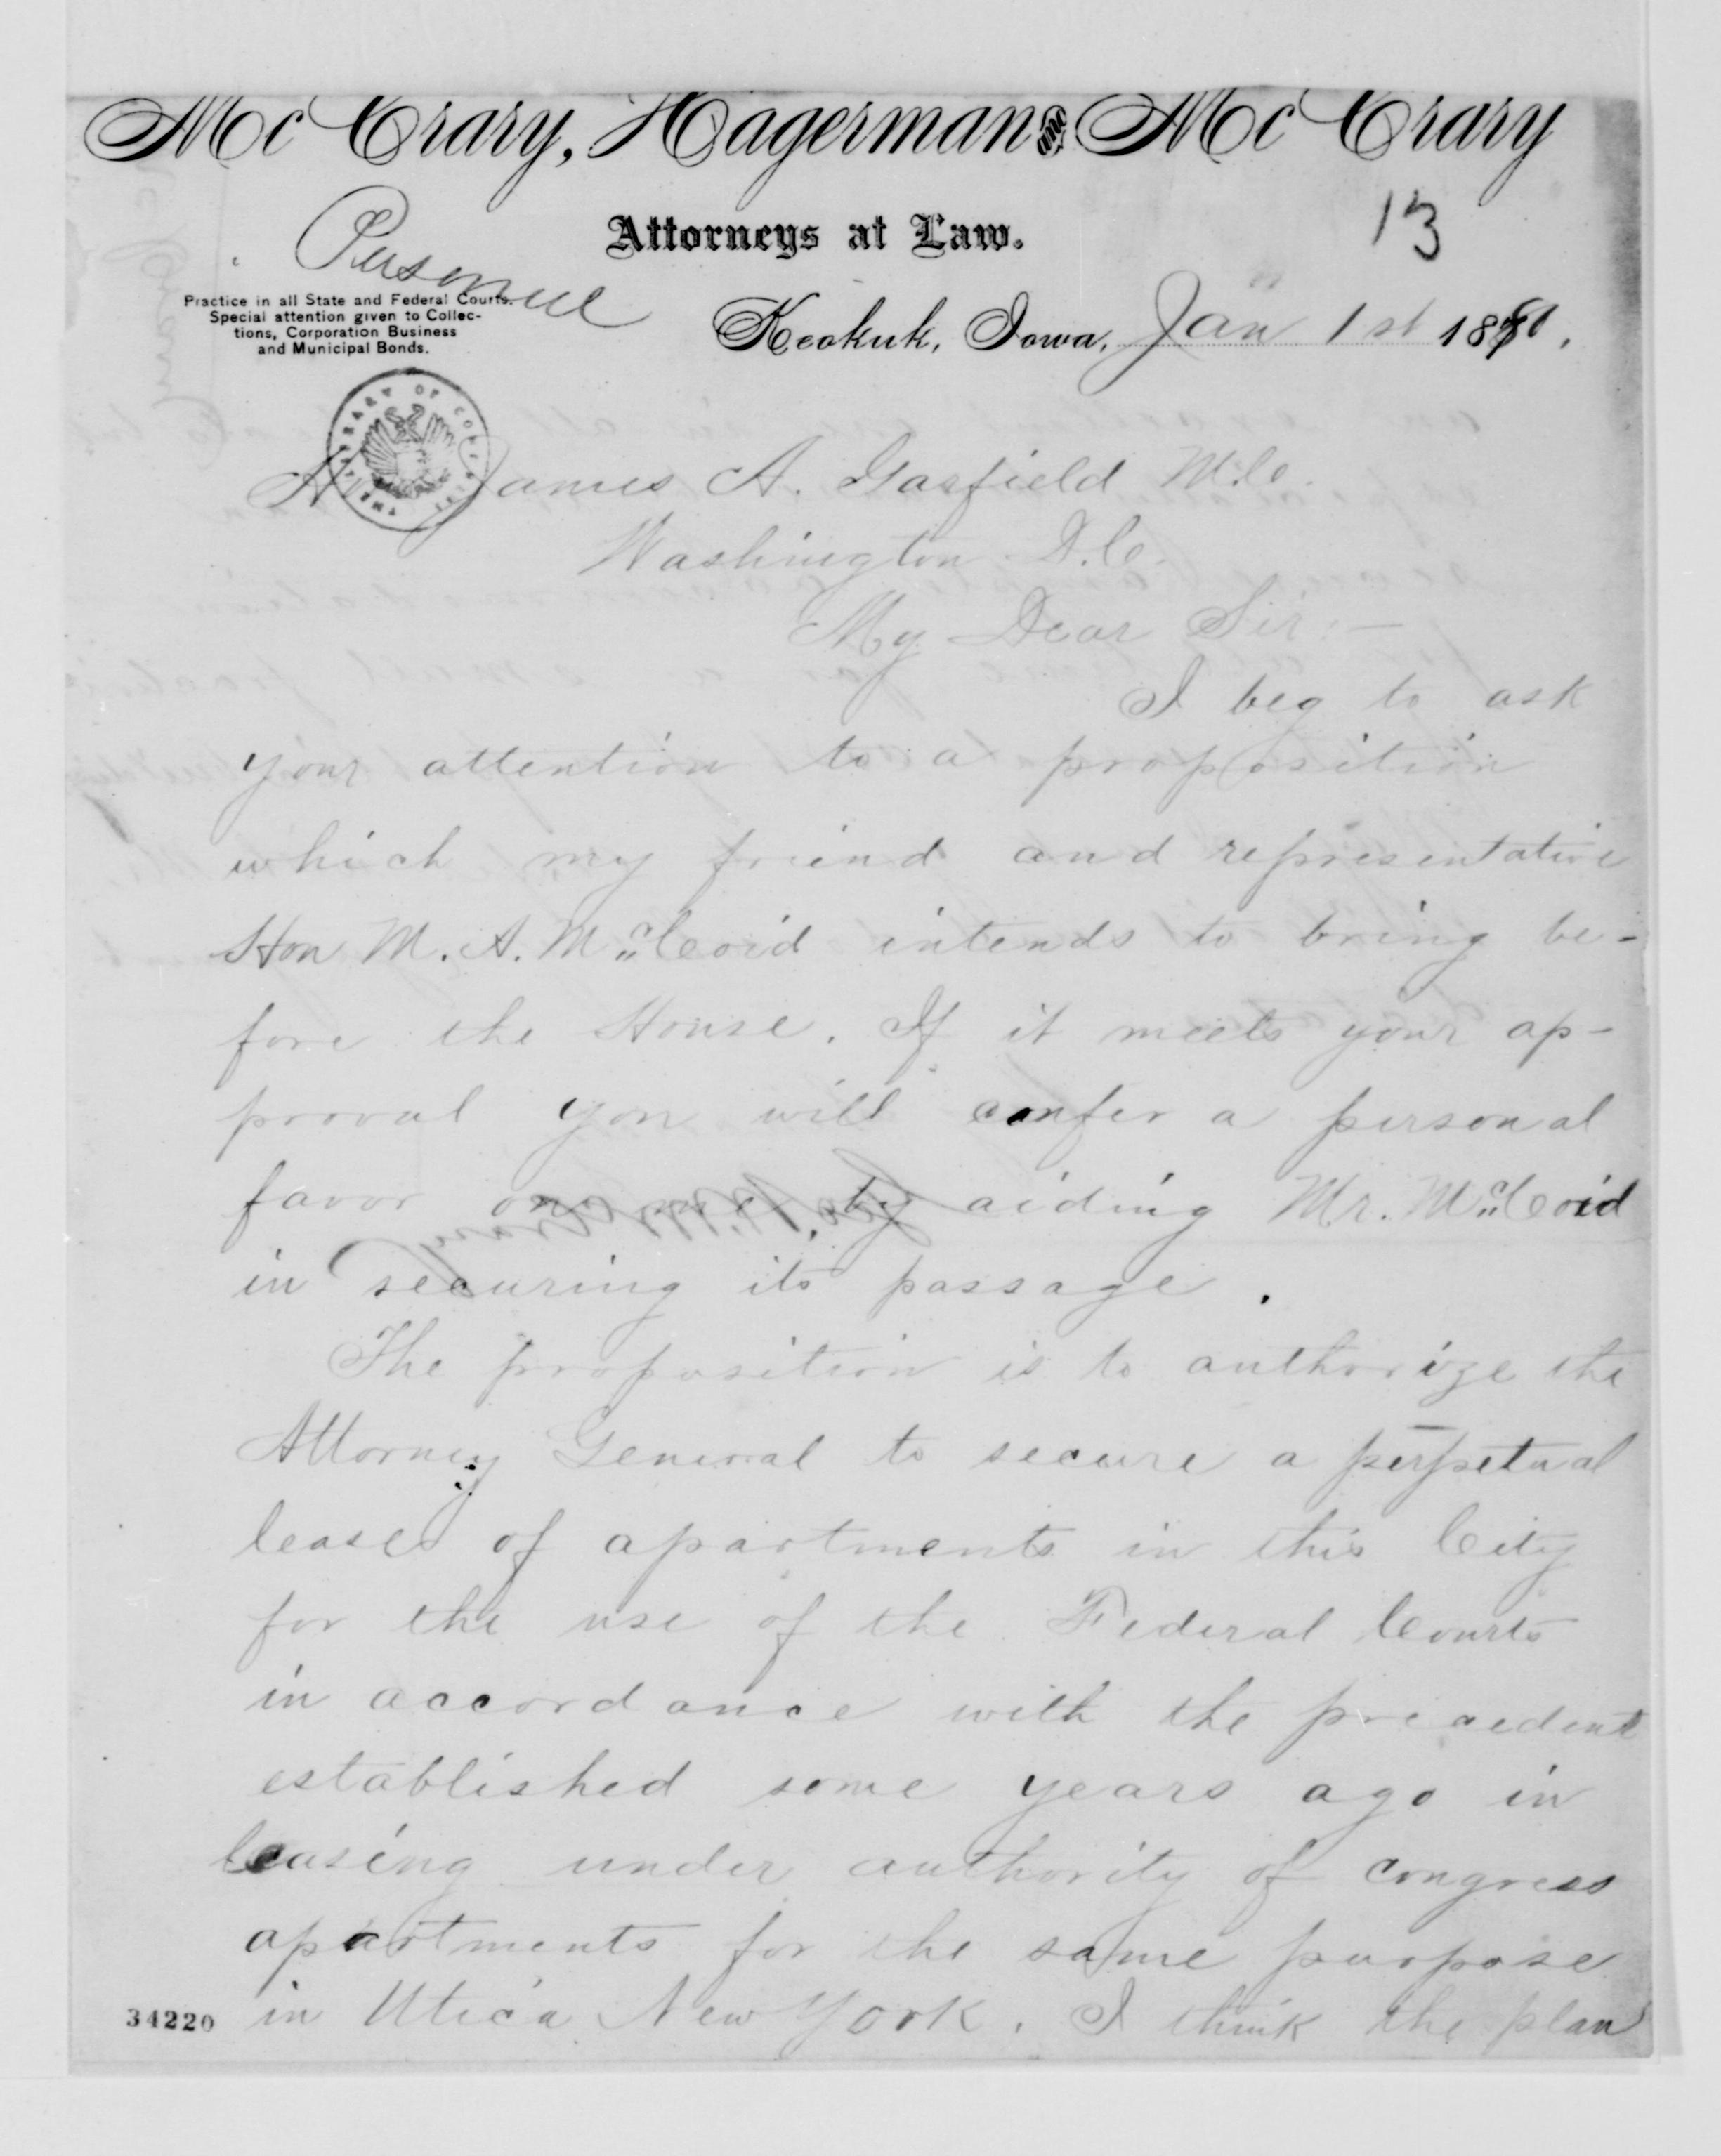 McCrary, Hagerman and McCrary
Attorneys at Law.
13
Personal
Practice in all State and Federal Courts.
Special attention given to Collec-
tions, Corporation Business
and Municipal Bonds.
Keokuk, Iowa, Jan 1st 1880.
Hon James A. Garfield M.C.
Washington D.C.
My Dear Sir:—
I beg to ask
your attention to a proposition
which my friend and representative
Hon M. A. McCoid intends to bring be-
fore the House. If it meets your ap-
proval you will confer a personal
favor on me, by aiding Mr. McCoid
in securing its passage.
The proposition is to authorize the
Attorney General to secure a perpetual
lease of apartments in this City
for the use of the Federal Courts
in accordance with the precedent
established some years ago in
leasing under authority of congress
apartments for the same purpose
in Utica New York. I think the plan
34220